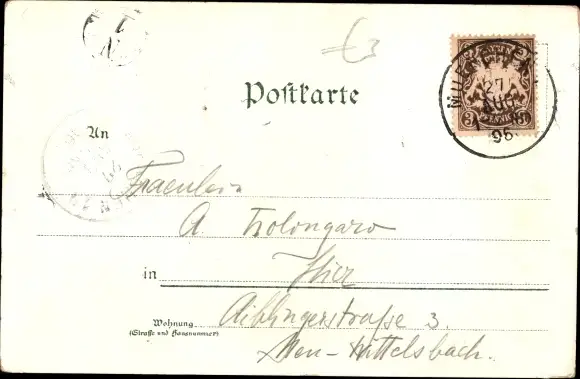 Postkarte
MUE
27
AUG
96
3
An
Fraeulein
A. Tolongaro
in Hier
Wohnung
(Straße und Hausnummer)
Aiblingerstraße 3.
Neu-Wittelsbach.